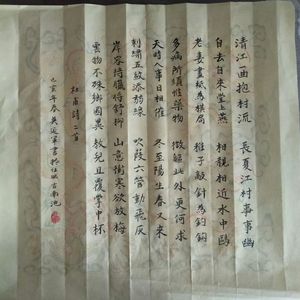 清江一曲抱村流 長夏江村事事幽
自去自來堂上燕 相親相近水中鷗
老妻畫紙為棋局 稚子敲針為釣鈎
多病所須惟藥物 微軀此外更何求
天時人事日相催 冬至陽生春又來
刺繡五紋添弱線 吹葭六管動飛灰
岸容待臘將舒柳 山意衝寒欲放梅
雲物不殊鄉國異 教兒且覆掌中杯
杜甫詩二首
己亥年春 書於任城古南池